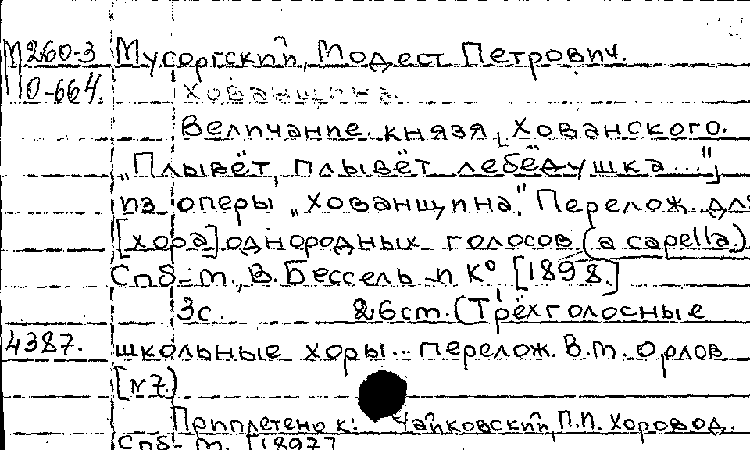 М260-3 Мусоргский, Модест Петрович.
О-664. Хованщина.
Величание князя Хованского.
„Плывёт, плывёт лебёдушка..."
из оперы „Хованщина". Перелож. для
[хора] однородных голосов (a capella.)
Спб-М., В. Бессель и К° [1898.]
3с. 26см. (Трёхголосные
4387. школьные хоры... перелож. В.М. Орлов
[№7)
Приплетено к: Чайковский, П.И. Хоровод.
Спб-М. [1897]